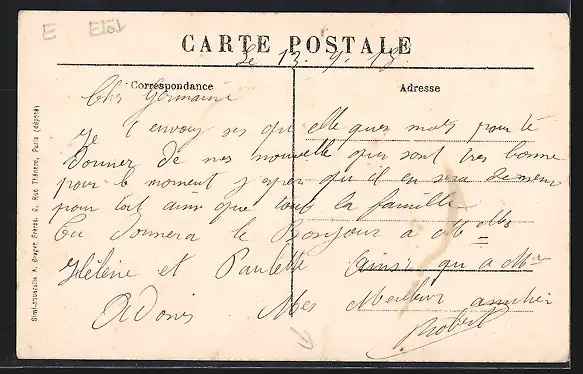 E Etat
CARTE POSTALE
Le 13. 9. 18.
Correspondance
Adresse
Chr Germaine
Je t envoy ses que elle ques mots pour te
Donner de nes nouvelle qui sont tres bonne
pour le moment j esper qu il en sera de meme
pour toit ainsi que tous la famille
tu Donnera le Bonjour a Melles
Hélène et Paulette ainsi qu a Mr
Adonis. Mes Meilleur amitier
Robert
Simili-aquarelle A. Breger Frères, 9, Rue Thénard, Paris (déposé)